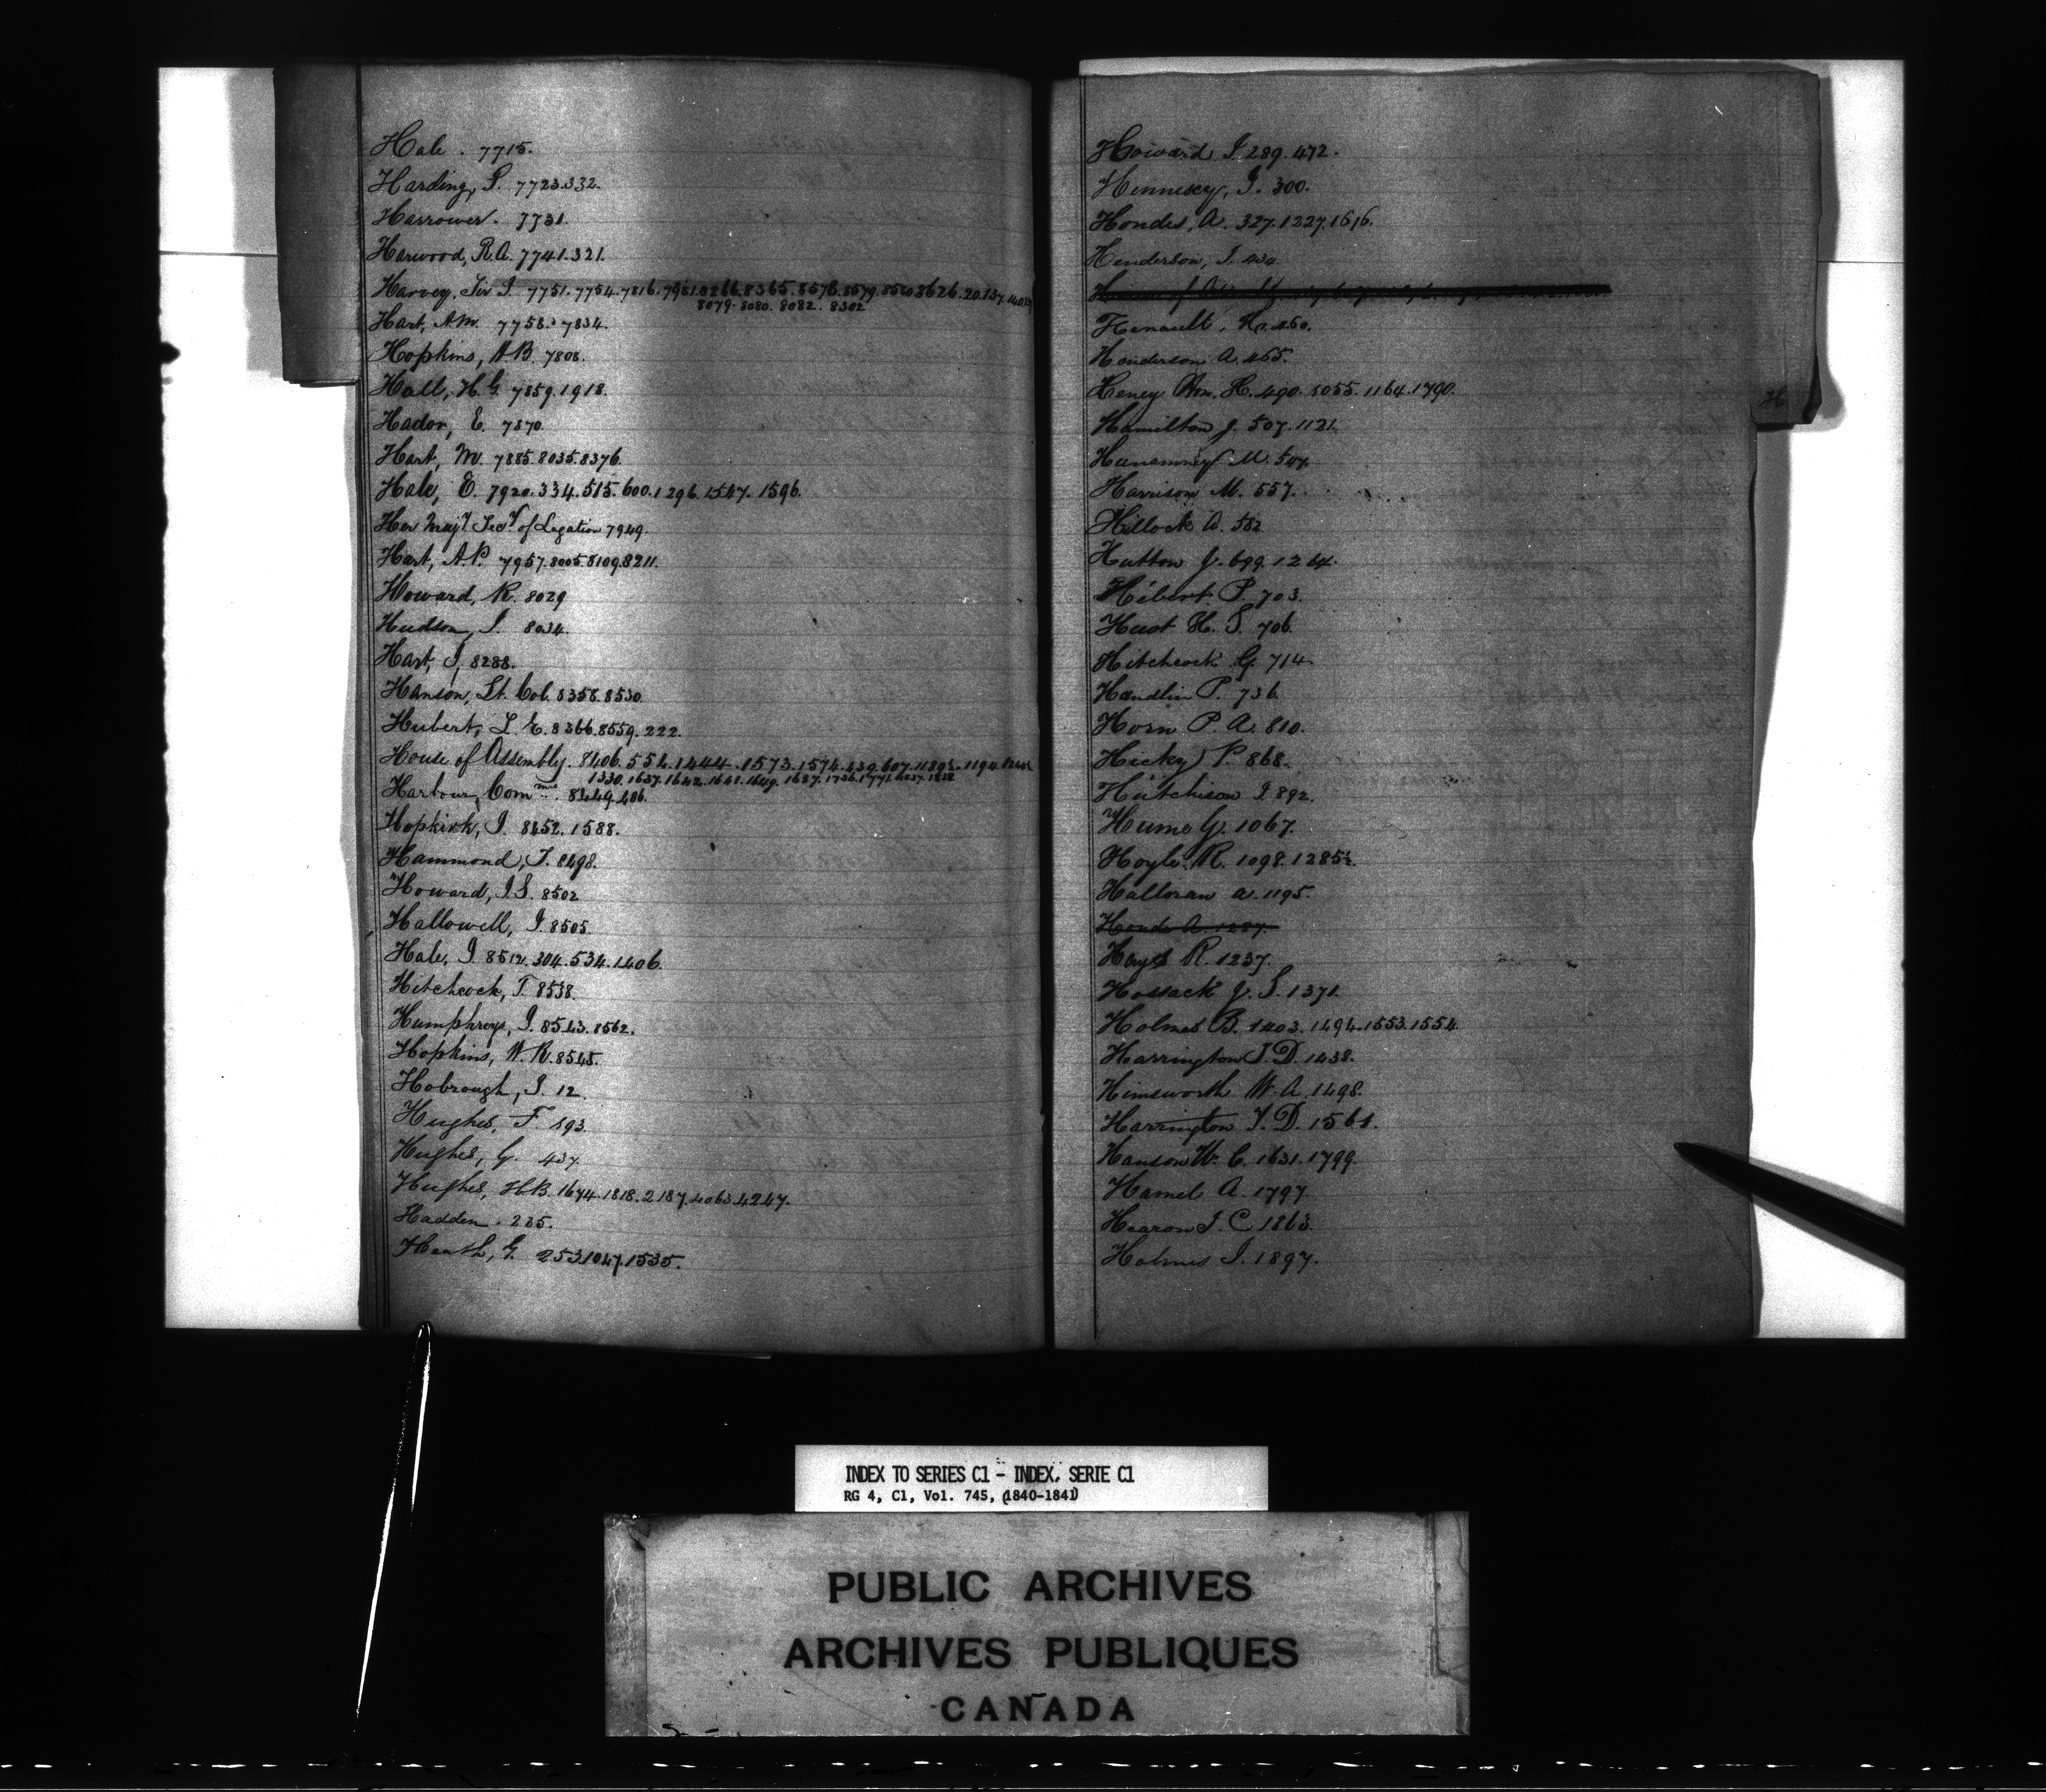 Hale . 7715.
Harding, P. 7723.332.
Harrower. 7731.
Harwood, R.A. 7741.321.
Harvey, Sir J. 7751.7754.7816.7961.8266.8365.8578.8579.8580.8626.20.137.
8079.8080.8082.8302
Hart, A.M. 7758.7834.
Hopkins, W.B. 7808.
Hall, H.G. 7859.1918.
Hador, E. 7870.
Hart, M. 7885.8035.8376.
Hale, E. 7920.334.515.600.1296.1547.1596.
Her Majy. Secy. of Legation 7949.
Hart, A.P. 7957.8005.8109.8211.
Howard, R. 8029
Hudson, J. 8034.
Hart, J, 8288.
Hanson, Lt. Col. 8358.8530.
Hubert, L. E. 8366.8559.222.
House of Assembly. 8406.554.1444.1573.1574.839.607.1194.
1330.1637.1642.1648.1649.1687.1736.1771.1838
Harbour, Comm. 8449.486.
Hopkirk, J. 8452.1588.
Hammond, T. 8498.
Howard, J.S. 8502
Hallowell, J. 8505.
Hale, J. 8512.304.534.1406.
Hitchcock, T. 8538.
Humphreys, J. 8543.8562.
Hopkins, W.R. 8545.
Hobrough, J. 12.
Hughes, F. 193.
Hughes, G. 437.
Hughes, H.B. 1674.1818.2187.4063.4247.
Hadden . 235.
Heath, G. 253.1047.1535.
Howard J. 289.472.
Hennesey, J. 300.
Hondes, A. 327.1227.1616.
Henderson, J. 434.
Henault, 460.
Henderson A. 465.
Heney Hon. H. 490.1055.1164.1790.
Hamilton J. 507.1121.
M. 547.
Harrison M. 557.
Hillock A. 582
Hutton J. 699.1264.
Hébert P. 703.
Huot H. S. 706.
Hitchcock G. 714.
Handlin P. 736.
Horn P. A. 810.
Hicky P. 868.
Hutchison J 892.
Hume G. 1067.
Hoyle R. 1098.1285½.
Halloran A. 1195.
Honde A. 1227.
Hays R. 1237.
Hossack J. S. 1371.
Holmes B. 1403.1494.1553.1554
Harrington T. D. 1438.
Himsworth W. A. 1498.
Harrington T. D. 1561.
Hanson W. C. 1631.1799.
Hamel A. 1797.
Hearon J. C 1863.
Holmes J. 1897.
H
INDEX TO SERIES C1 - INDEX, SERIE C1
RG 4, C1, Vol. 745, (1840-1841)
PUBLIC ARCHIVES
ARCHIVES PUBLIQUES
CANADA